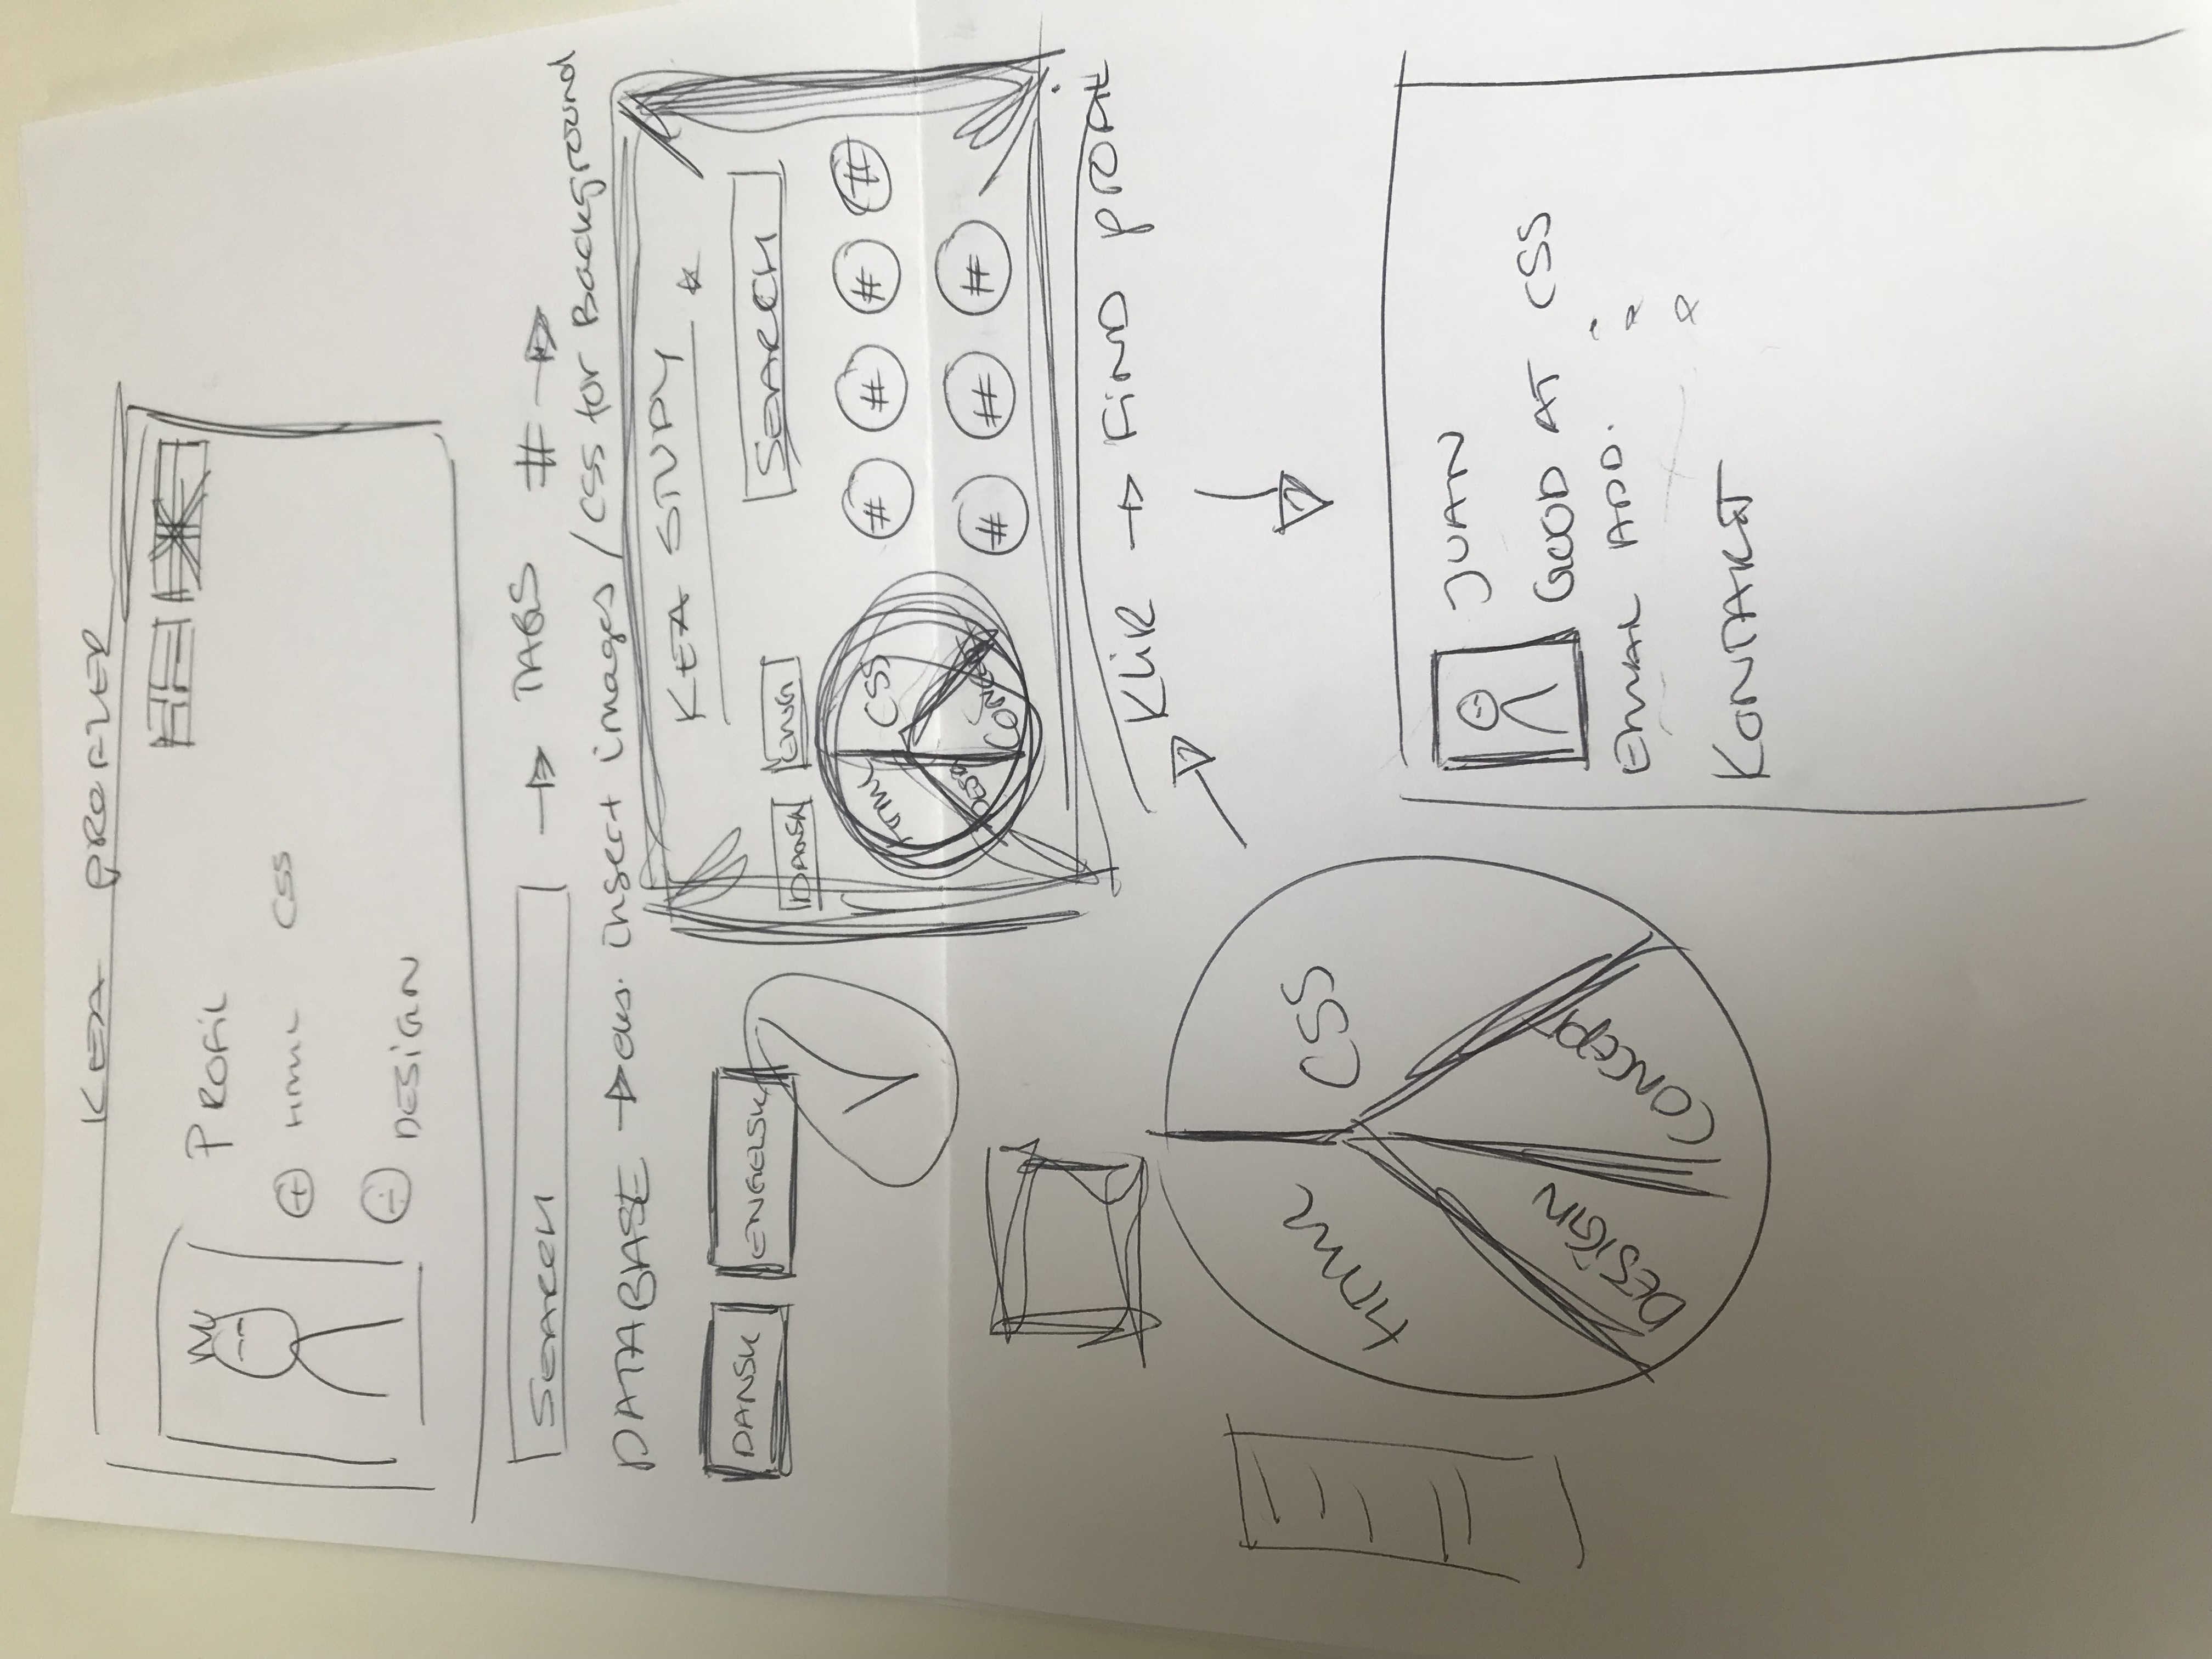 KEA PROFILER
PROFIL
+ HTML CSS
- DESIGN
SEARCH → TAGS # →
DATABASE → eks. insert images / CSS for Background
KEA STUDY
DANSK ENGELSK
SEARCH
DANSK ENG
HTML CSS
# # # #
DESIGN CONCEPT
# # #
KLIK → FIND PROFIL
HTML CSS
DESIGN CONCEPT
JUAN
GOOD AT CSS
EMAIL ADD.
KONTAKT